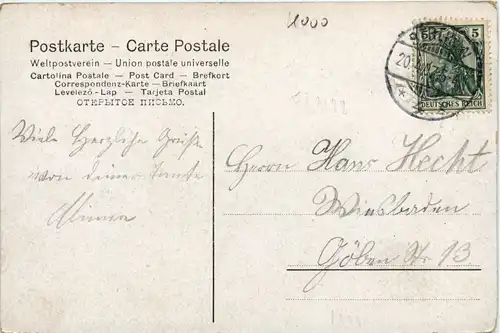 1000
Postkarte – Carte Postale
Weltpostverein – Union postale universelle
Cartolina Postale – Post Card – Brefkort
Correspondenz-Karte – Briefkaart
Levelező-Lap – Tarjeta Postal
ОТКРЫТОЕ ПИСЬМО.
5
DEUTSCHES REICH
20
Viele herzliche Grüße
von deiner Tante
Herrn Hans Hecht
Wiesbaden
Göben Str 13